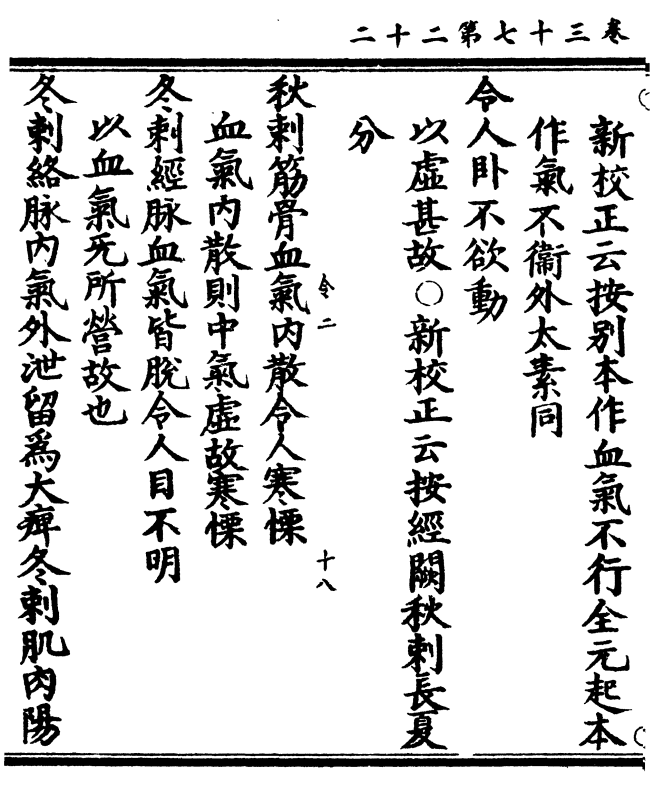 卷三十七第二十二
新校正云按别本作血氣不行全元起本
作氣不衞外太素同
令人卧不欲動
以虛甚故○新校正云按經闕秋刺長夏
分
令二
十八
秋刺筋骨血氣内散令人寒慄
血氣内散則中氣虛故寒慄
冬刺經脉血氣皆脫令人目不明
以血氣旡所營故也
冬刺絡脉内氣外泄留爲大痺冬刺肌肉陽